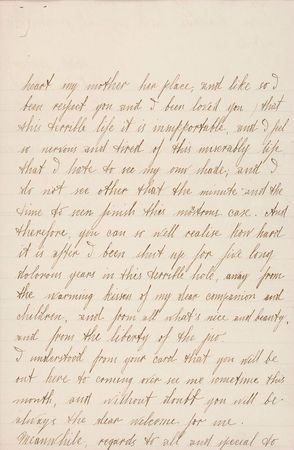 heart my mother her place, and like so I
been respect you and I been loved you, that
this terrible life it is insupportable, and I feel
so nervous and tired of this miserably life
that I hate to see my own shade, and I
do not see other that the minute and the
time to seen finish this mostrous case. And
therefore, you can so well realise how hard
it is after I been shut up for five long
dolorous years in this terrible hole, away from
the warming kisses of my dear companion and
children, and from all what's nice and beauty,
and from the liberty of the
I understood from your card that you will be
out here to coming over see me sometime this
month, and without doubt you will be
always the dear welcome for me.
Meanwhile, regards to all and special to